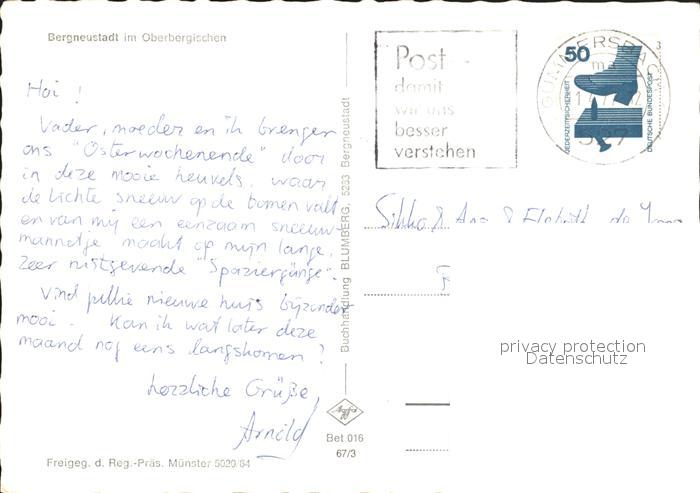 Bergneustadt im Oberbergischen
Hoi !
Vader, moeder en ik brengen
ons "Osterwochenende" door
in deze mooie heuvels, waar
de lichte sneeuw op de bomen valt
en van mij een eenzaam sneeuw-
mannetje maakt op mijn lange,
zeer rustgevende "Spaziergänge".
Vind jullie nieuwe huis bijzonder
mooi. Kan ik wat later deze
maand nog eens langskomen ?
herzliche Grüße,
Arnold
Freigeg. d. Reg.-Präs. Münster 5020/64
Buchhandlung BLUMBERG, 5283 Bergneustadt
Bet 016
67/3
Post
damit
wir uns
besser
verstehen
GUMMERSBACH
ma
527
50
JEDERZEIT SICHERHEIT
DEUTSCHE BUNDESPOST
& Ana & de
privacy protection
Datenschutz